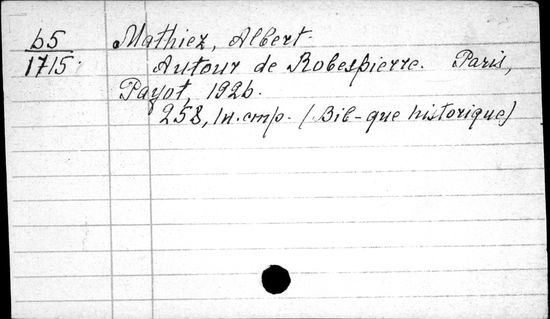 b5
1715.
Mathiez, Albert.
Autour de Robespierre. Paris,
Payot, 1926.
258, 1н. стр. (Bib-que historique)